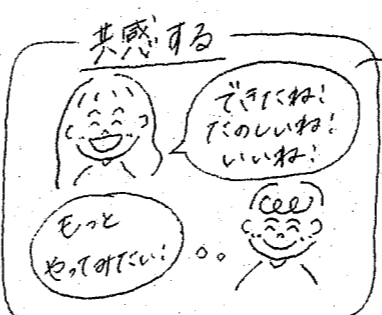 共感する
できたね!
たのしいね!
いいね!
もっと
やってみたい!